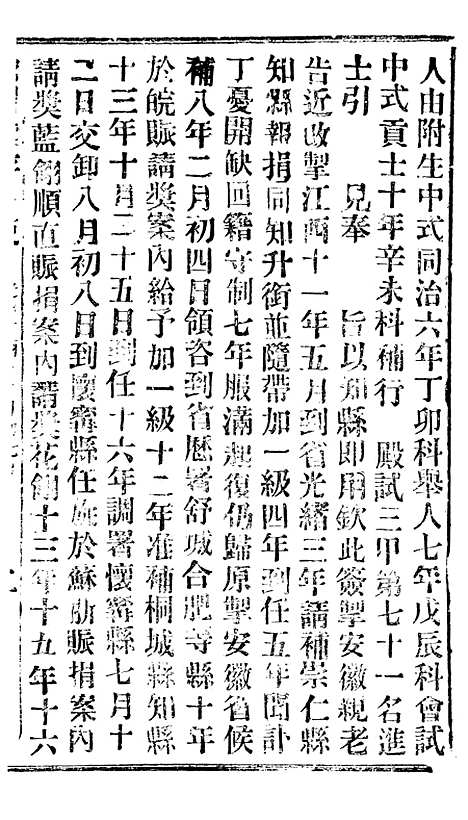 人由附生中式同治六年丁卯科舉人七年戊辰科會試
中式貢士十年辛未科補行　殿試三甲第七十一名進
士引　　見奉　　旨以知縣即用欽此簽掣安徽親老
告近改掣江西十一年五月到省光緒三年請補崇仁縣
知縣報捐同知升銜並隨帶加一級四年到任五年聞訃
丁憂開缺回籍守制七年服滿起復仍歸原掣安徽省候
補八年二月初四日領咨到省歷署舒城合肥等縣十年
於皖賑請獎案內給予加一級十二年准補桐城縣知縣
十三年十月二十五日到任十六年調署懷寧縣七月十
二日交卸八月初八日到懷寧縣任旋於蘇賑捐案內
請獎藍翎順直賑捐案內請獎花翎十三年十五年十六